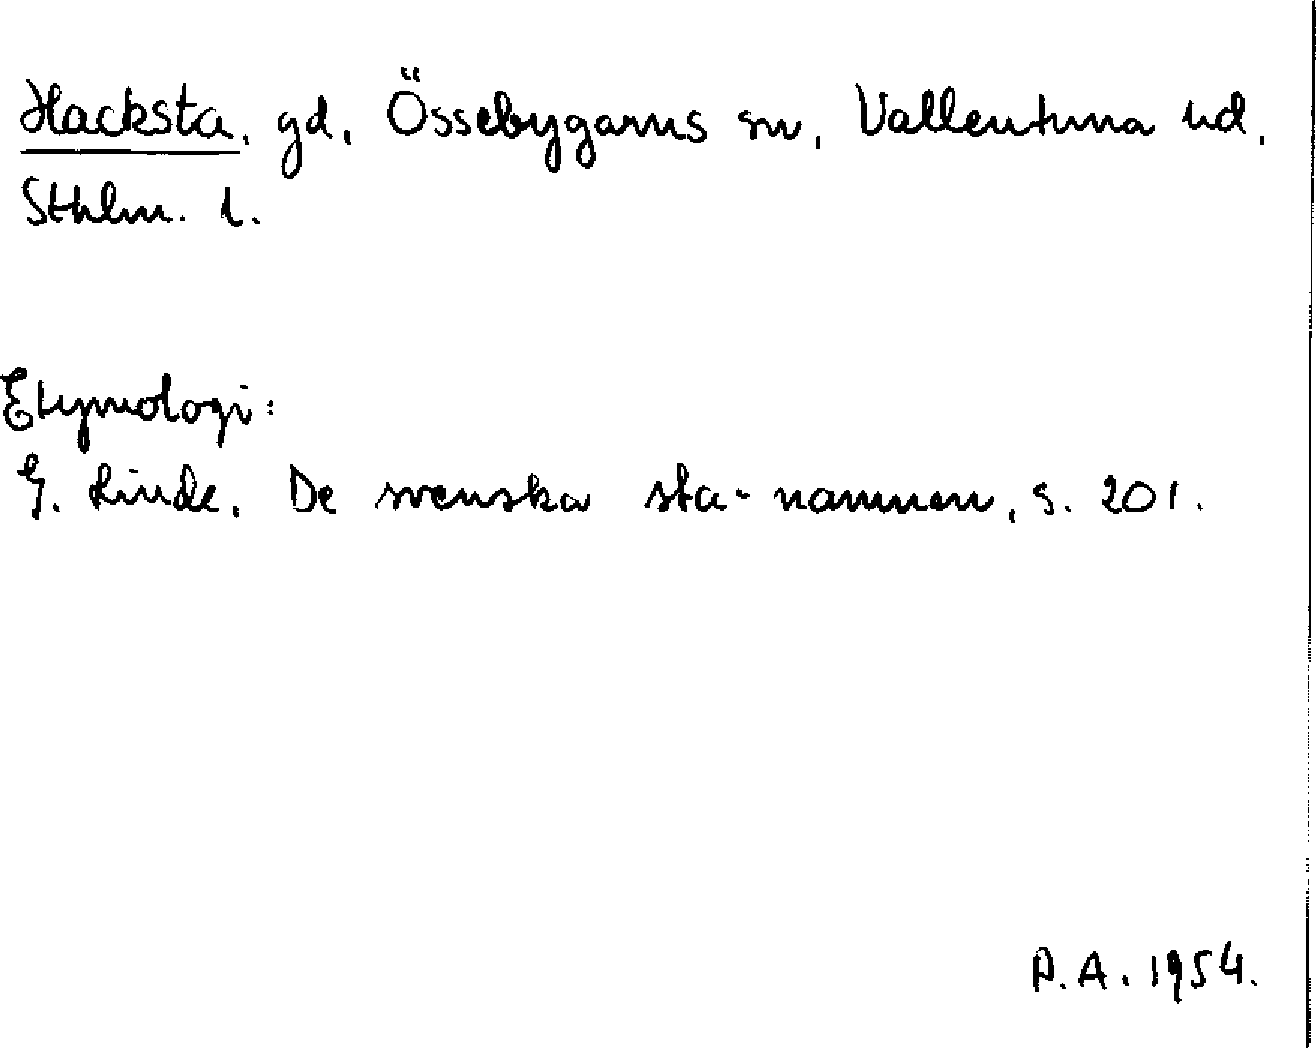 Hacksta, gd, Össebygarns sn, Vallentuna hd,
Sthlm. l.
Etymologi:
G. Linde, De svenska sta-namnen, s. 201.
P.A. 1954.